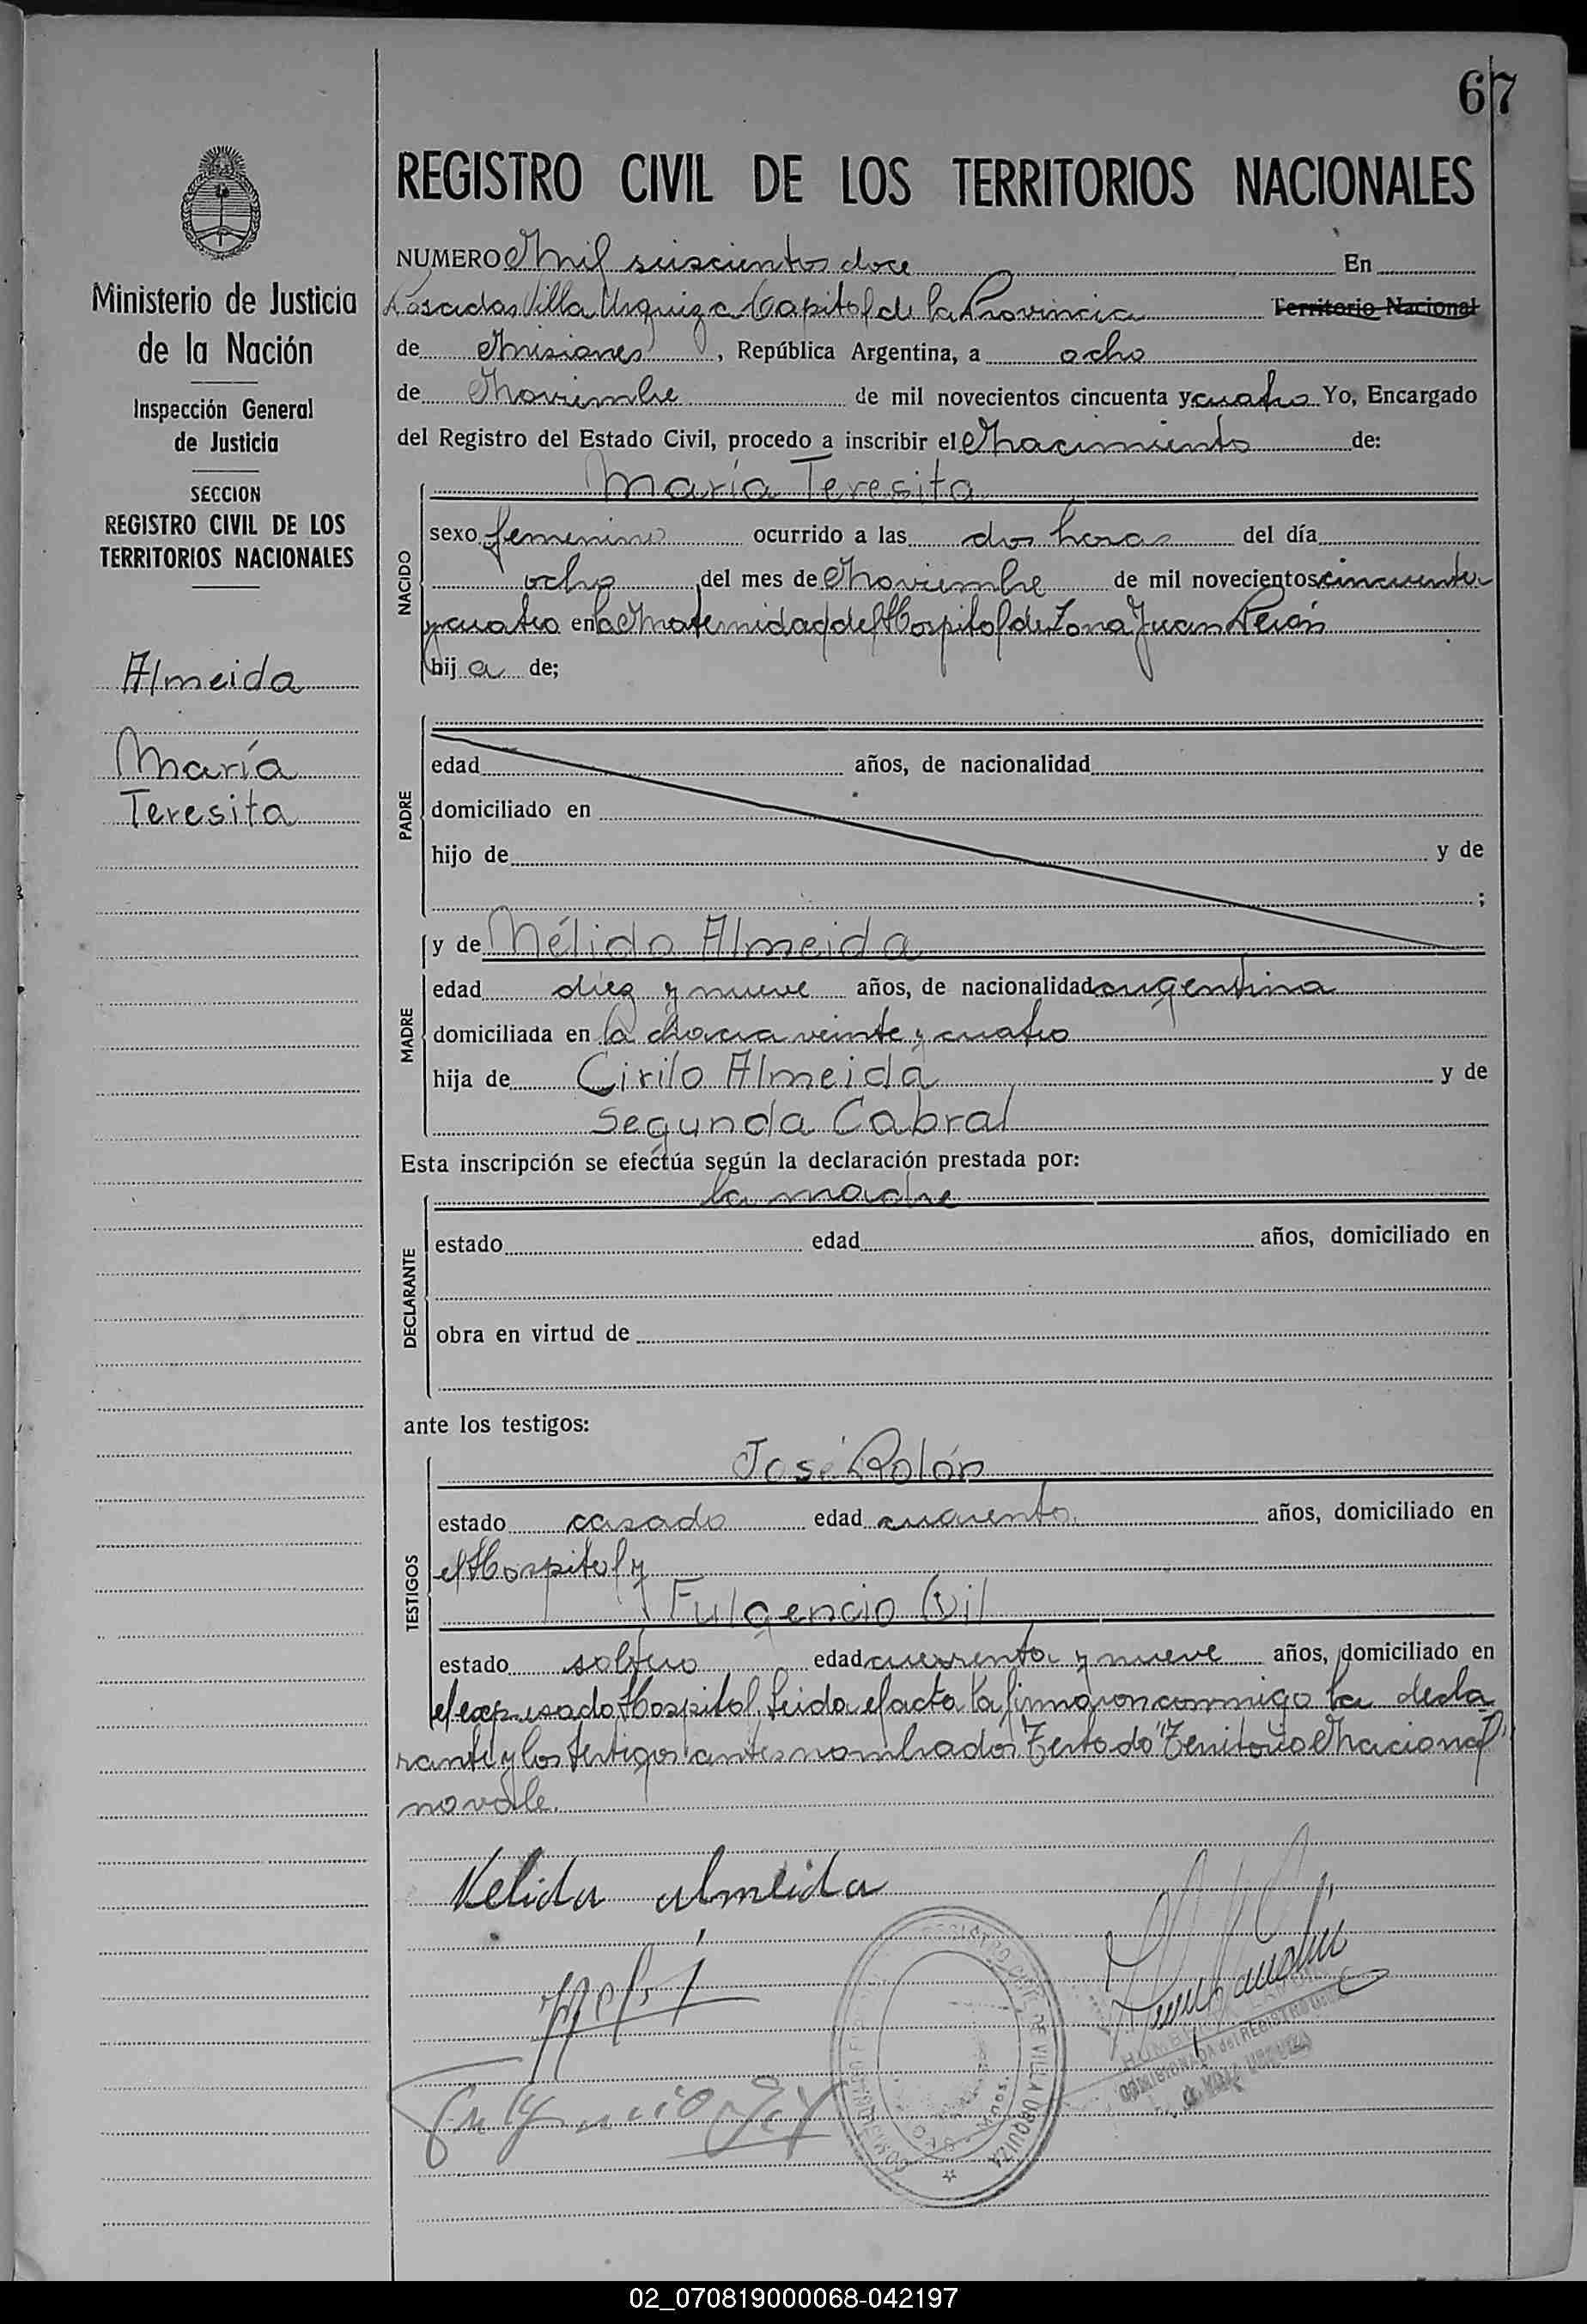 67
REGISTRO CIVIL DE LOS TERRITORIOS NACIONALES
Ministerio de Justicia
de la Nación
Inspección General
de Justicia
SECCION
REGISTRO CIVIL DE LOS
TERRITORIOS NACIONALES
Almeida
María
Teresita
NUMERO Mil seiscientos doce En
Posadas Villa Urquiza Capital de la Provincia Territorio Nacional
de Misiones, República Argentina, a ocho
de Noviembre de mil novecientos cincuenta y cuatro Yo, Encargado
del Registro del Estado Civil, procedo a inscribir el Nacimiento de:
NACIDO
María Teresita
sexo femenino ocurrido a las dos horas del día
ocho del mes de Noviembre de mil novecientos cincuenta
y cuatro en la Maternidad del Hospital de Zona Juan Perón
hij a de;
PADRE
edad años, de nacionalidad
domiciliado en
hijo de y de
;
MADRE
y de Nélida Almeida
edad diez y nueve años, de nacionalidad argentina
domiciliada en la chacra veinte y cuatro
hija de Cirilo Almeida y de
Segunda Cabral
Esta inscripción se efectúa según la declaración prestada por:
DECLARANTE
la madre
estado edad años, domiciliado en
obra en virtud de
ante los testigos:
TESTIGOS
José Rolón
estado casado edad cuarenta años, domiciliado en
el Hospital y
Fulgencio Gil
estado soltero edad cuarenta y nueve años, domiciliado en
el expresado Hospital. Leida el acta la firmaron conmigo la decla
rante y los testigos antes nombrados Testado "Territorio Nacional"
no vale.
Nelida almeida
Fulgencio Gil
REGISTRO CIVIL DE VILLA URQUIZA
COMISIONADA del REGISTRO CIVIL
VILLA URQUIZA
02_070819000068-042197